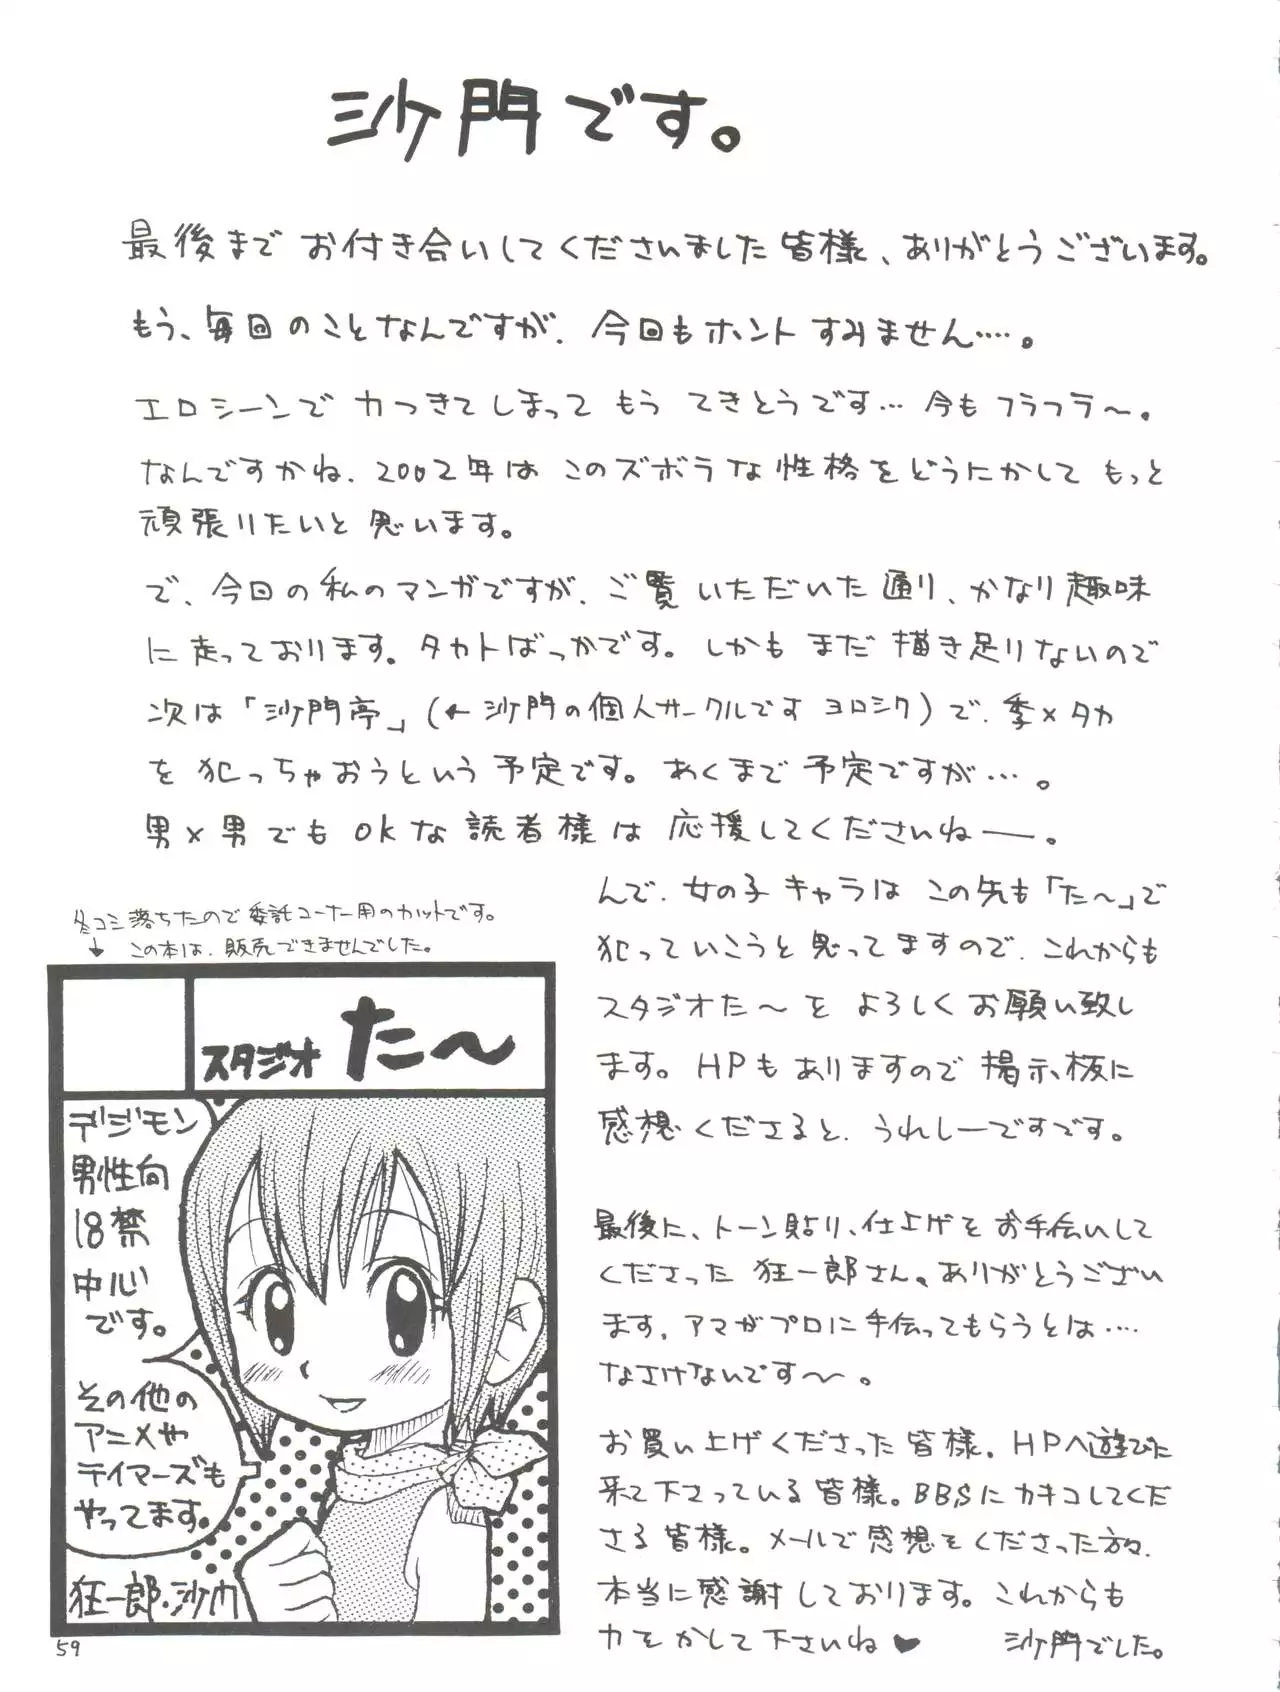 沙門です。
最後まで お付き合いしてくださいました 皆様、ありがとうございます。
もう、毎回のことなんですが、今回もホント すみません……。
エロシーンで 力つきてしまって もう てきとうです… 今も フラフラ〜。
なんですかね、2002年は このズボラな性格を どうにかして もっと
頑張りたいと 思います。
で、今回の私のマンガですが、ご覧 いただいた 通り、かなり趣味
に走っております。タカトばっかです。しかも まだ 描き足りないので
次は「沙門亭」(←沙門の個人サークルです ヨロシク)で、季×タカ
を 犯っちゃおうという 予定です。あくまで 予定ですが…。
男×男でも OKな 読者様は 応援してくださいねー。
んで、女の子キャラは この先も「た〜」で
犯っていこうと思ってますので、これからも
スタジオた〜を よろしく お願い致し
ます。HPも ありますので 掲示板に
感想くださると、うれしーですです。
最後に、トーン貼り、仕上げを お手伝いして
くださった 狂一郎さん。ありがとうござい
ます。アマがプロに手伝ってもらうとは……
なさけないです〜。
お買い上げくださった 皆様。HPへ遊びに
来て下さっている 皆様。BBSにカキコしてくだ
さる 皆様。メールで感想をくださった方々、
本当に感謝しております。これからも
力を かして 下さいね♥
沙門でした。
冬コミ落ちたので 委託コーナー用のカットです。
↓ この本は、販売できませんでした。
スタジオ た〜
デジモン
男性向
18禁
中心
です。
その他の
アニメや
テイマーズも
やってます。
狂一郎・沙門
59